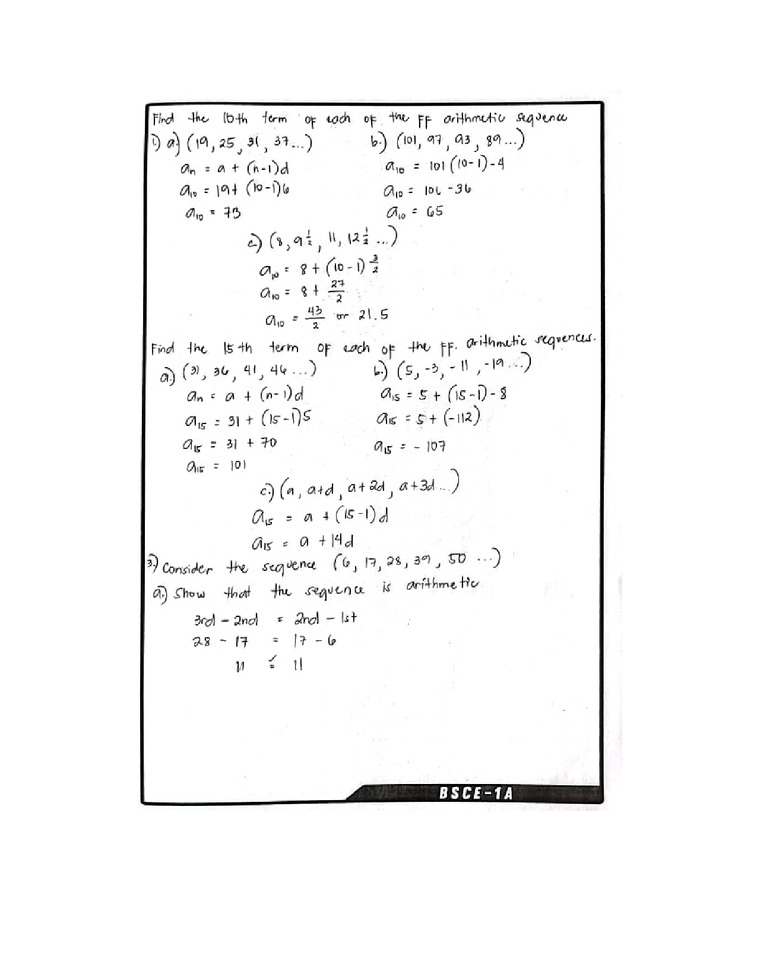 Find the 10th term of each of the FF arithmetic sequence
1) a.) (19, 25, 31, 37...)
an = a + (n-1)d
a10 = 19+ (10-1)6
a10 = 73
b.) (101, 97, 93, 89...)
a10 = 101 (10-1)-4
a10 = 101 -36
a10 = 65
c.) (8, 9 1/2, 11, 12 1/2 ...)
a10 = 8 + (10-1) 3/2
a10 = 8 + 27/2
a10 = 43/2 or 21.5
Find the 15th term of each of the FF. arithmetic sequences.
a.) (31, 36, 41, 46...)
an = a + (n-1)d
a15 = 31 + (15-1)5
a15 = 31 + 70
a15 = 101
b.) (5, -3, -11, -19...)
a15 = 5 + (15-1)-8
a15 = 5 + (-112)
a15 = -107
c.) (a, a+d, a+2d, a+3d...)
a15 = a + (15-1)d
a15 = a + 14d
3.) Consider the sequence (6, 17, 28, 39, 50 ...)
a.) Show that the sequence is arithmetic
3rd - 2nd = 2nd - 1st
28 - 17 = 17 - 6
11 = 11
BSCE-1A